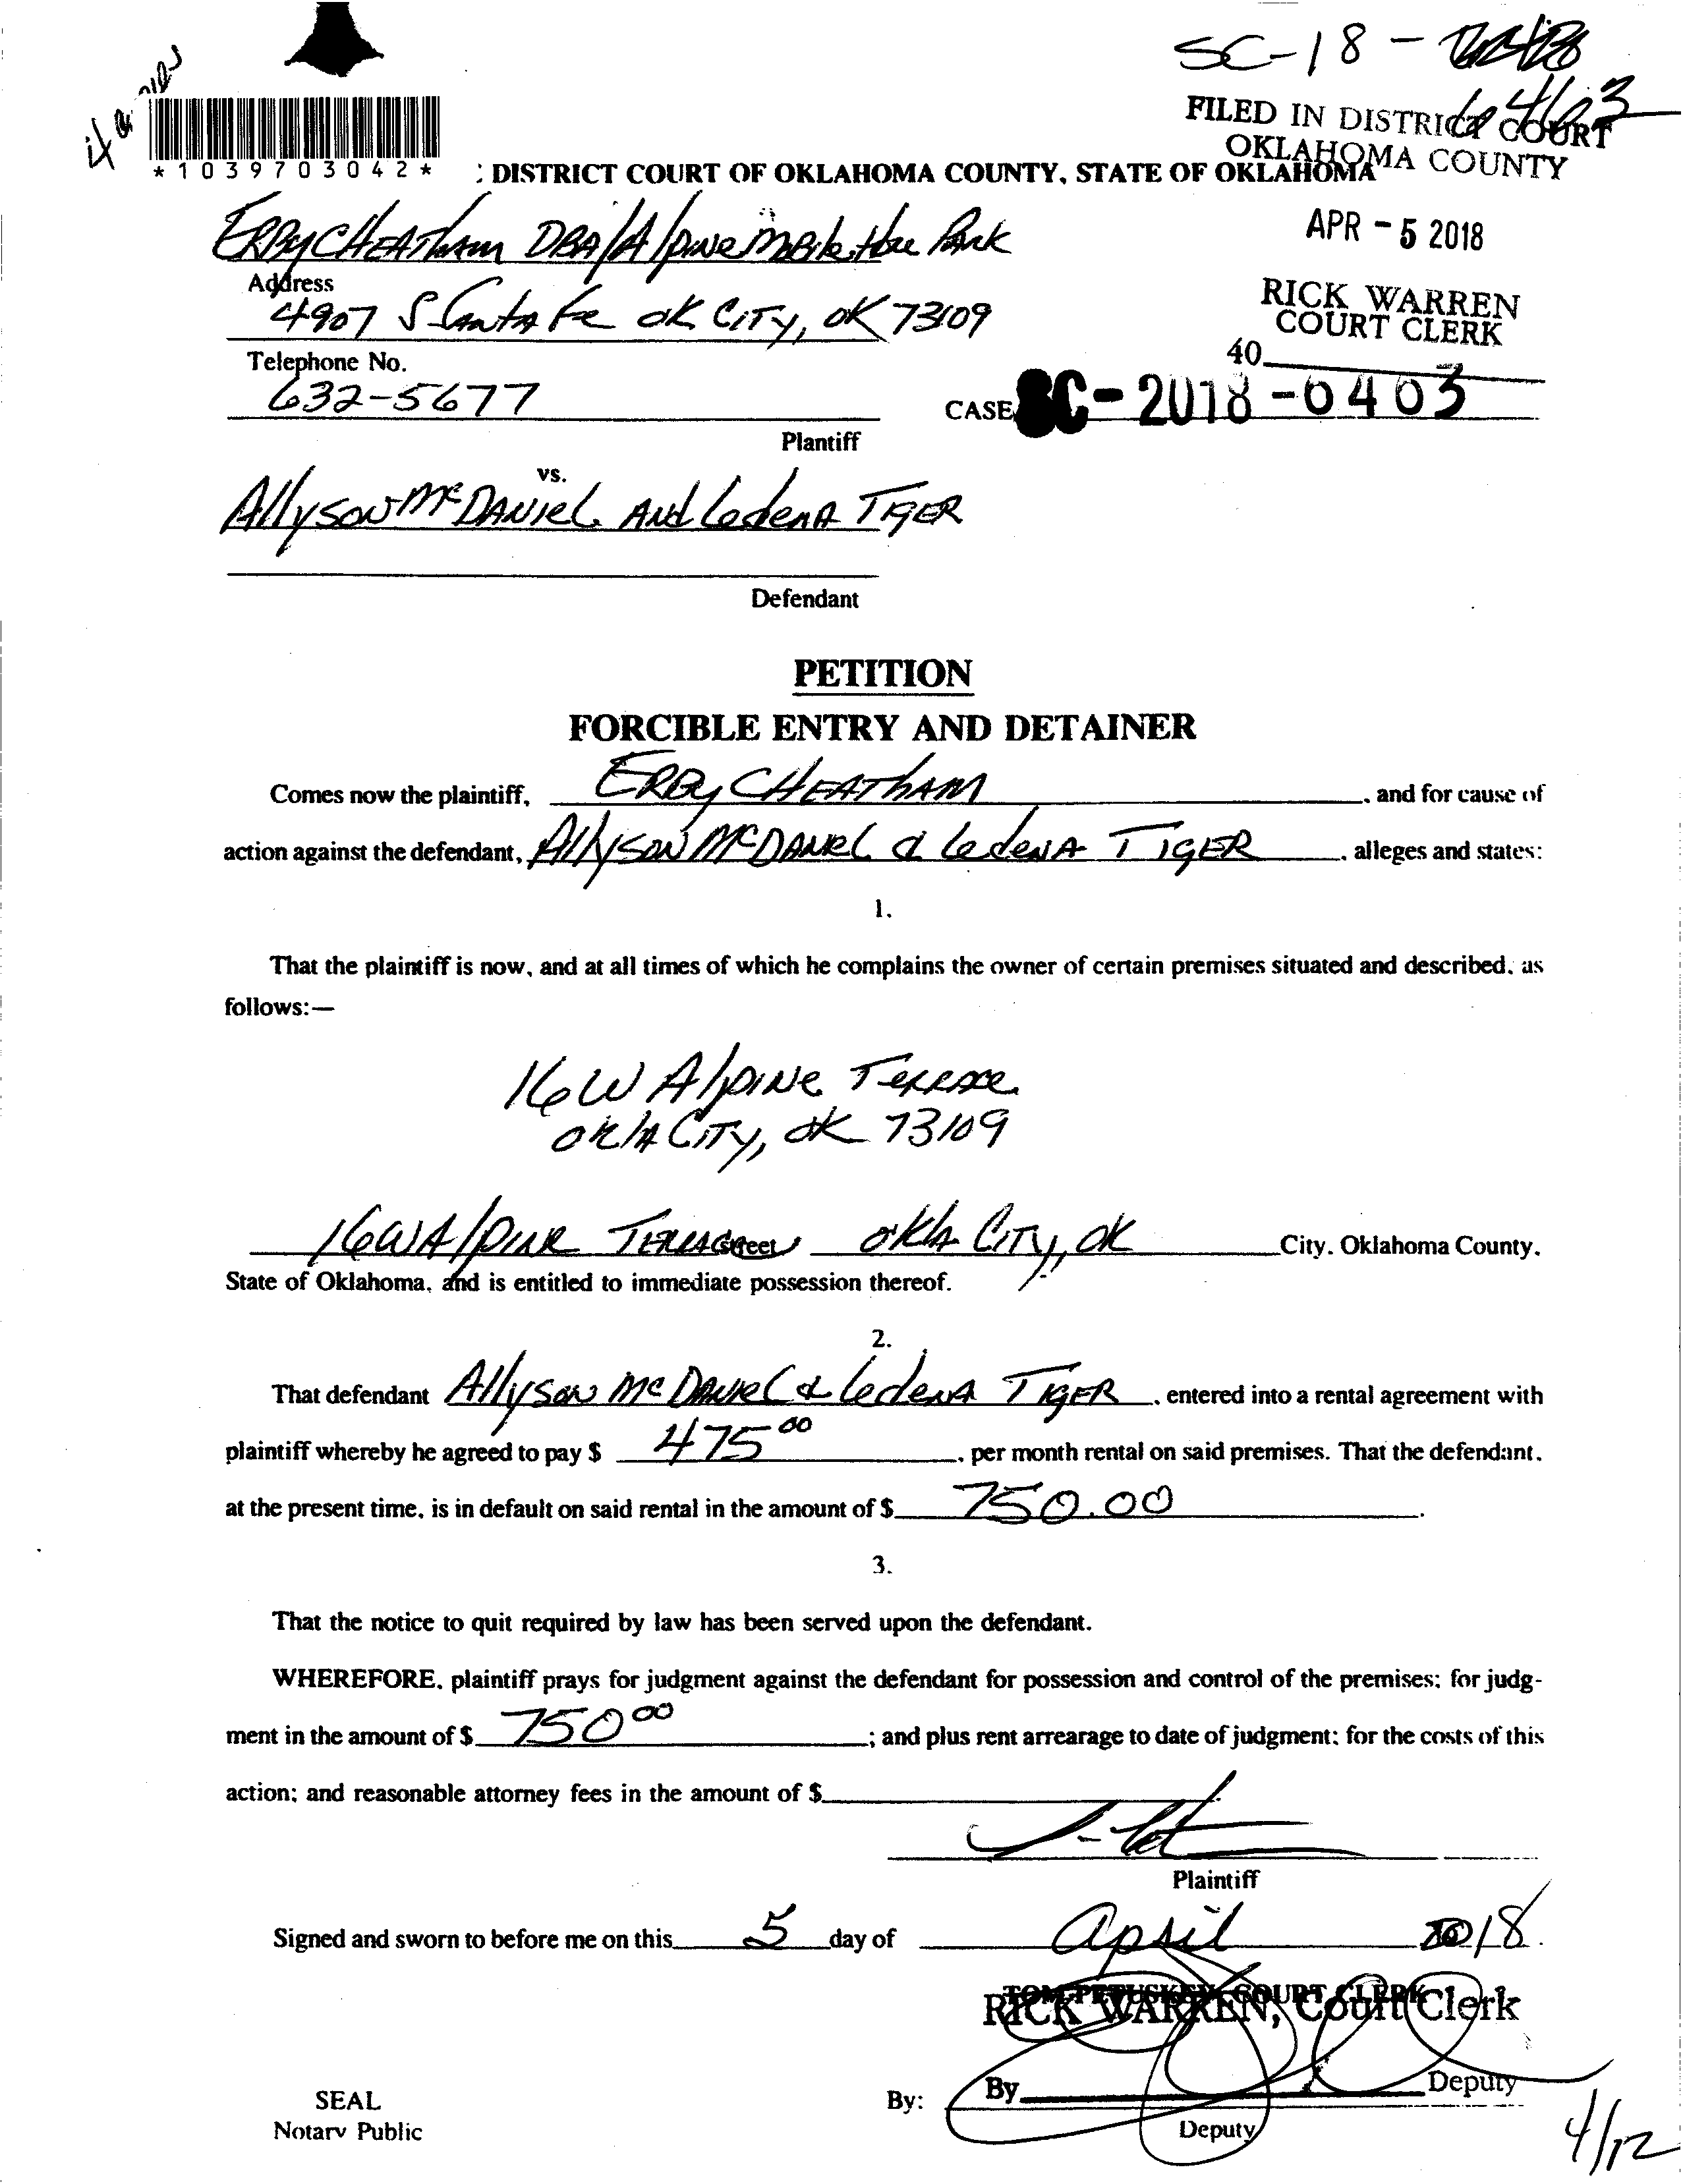 SC-18-
6403
FILED IN DISTRICT COURT
OKLAHOMA COUNTY
*1039703042*
: DISTRICT COURT OF OKLAHOMA COUNTY, STATE OF OKLAHOMA
APR - 5 2018
ERBy CHEATham DBA/Alpine Mobile Home Park
RICK WARREN
COURT CLERK
Address
4907 S Santa Fe ok CiTy, OK 73109
40
Telephone No.
632-5677
CASE SC-2018-6403
Plantiff
vs.
Allyson McDaniel And Ledena TIGER
Defendant
PETITION
FORCIBLE ENTRY AND DETAINER
Comes now the plaintiff, ERBy CHEAThAM, and for cause of
action against the defendant, Allyson McDaniel & Ledena TIGER, alleges and states:
1.
That the plaintiff is now, and at all times of which he complains the owner of certain premises situated and described, as
follows:—
16 W Alpine Terrace
okla CiTy, ok 73109
16 W Alpine Terrace Street okla City, OK City, Oklahoma County,
State of Oklahoma, and is entitled to immediate possession thereof.
2.
That defendant Allyson McDaniel & Ledena TIGER, entered into a rental agreement with
plaintiff whereby he agreed to pay $ 475 00, per month rental on said premises. That the defendant,
at the present time, is in default on said rental in the amount of $ 750.00.
3.
That the notice to quit required by law has been served upon the defendant.
WHEREFORE, plaintiff prays for judgment against the defendant for possession and control of the premises; for judg-
ment in the amount of $ 750 00; and plus rent arrearage to date of judgment; for the costs of this
action; and reasonable attorney fees in the amount of $
Plaintiff
Signed and sworn to before me on this 5 day of April 2018.
TOM PETUSKEY, COURT CLERK
RICK WARREN, Court Clerk
By Deputy
SEAL
By:
Notary Public
Deputy
4/12